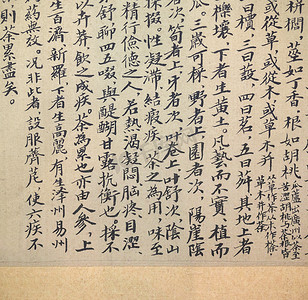 栟櫚莖如丁香根如胡桃
或從草或從木或草木并
曰檟三曰蔎四名茗五曰荈其地上者
櫟壤下者生黃土凡藝而不實植而
瓜三歲可採野者上園者次陽崖陰
次筍者上牙者次葉卷上葉舒次陰山
採掇性凝滯結瘕疾茶之為用味至
精行儉德之人若熱渴凝悶腦疼目澀
舒聊四五啜與醍醐甘露抗衡也採不
以卉莽飲之成疾茶為累也亦由人參上
生百濟新羅下者生高麗有生澤州易州
藥無效況非此者設服薺苨使六疾不
茶累盡矣